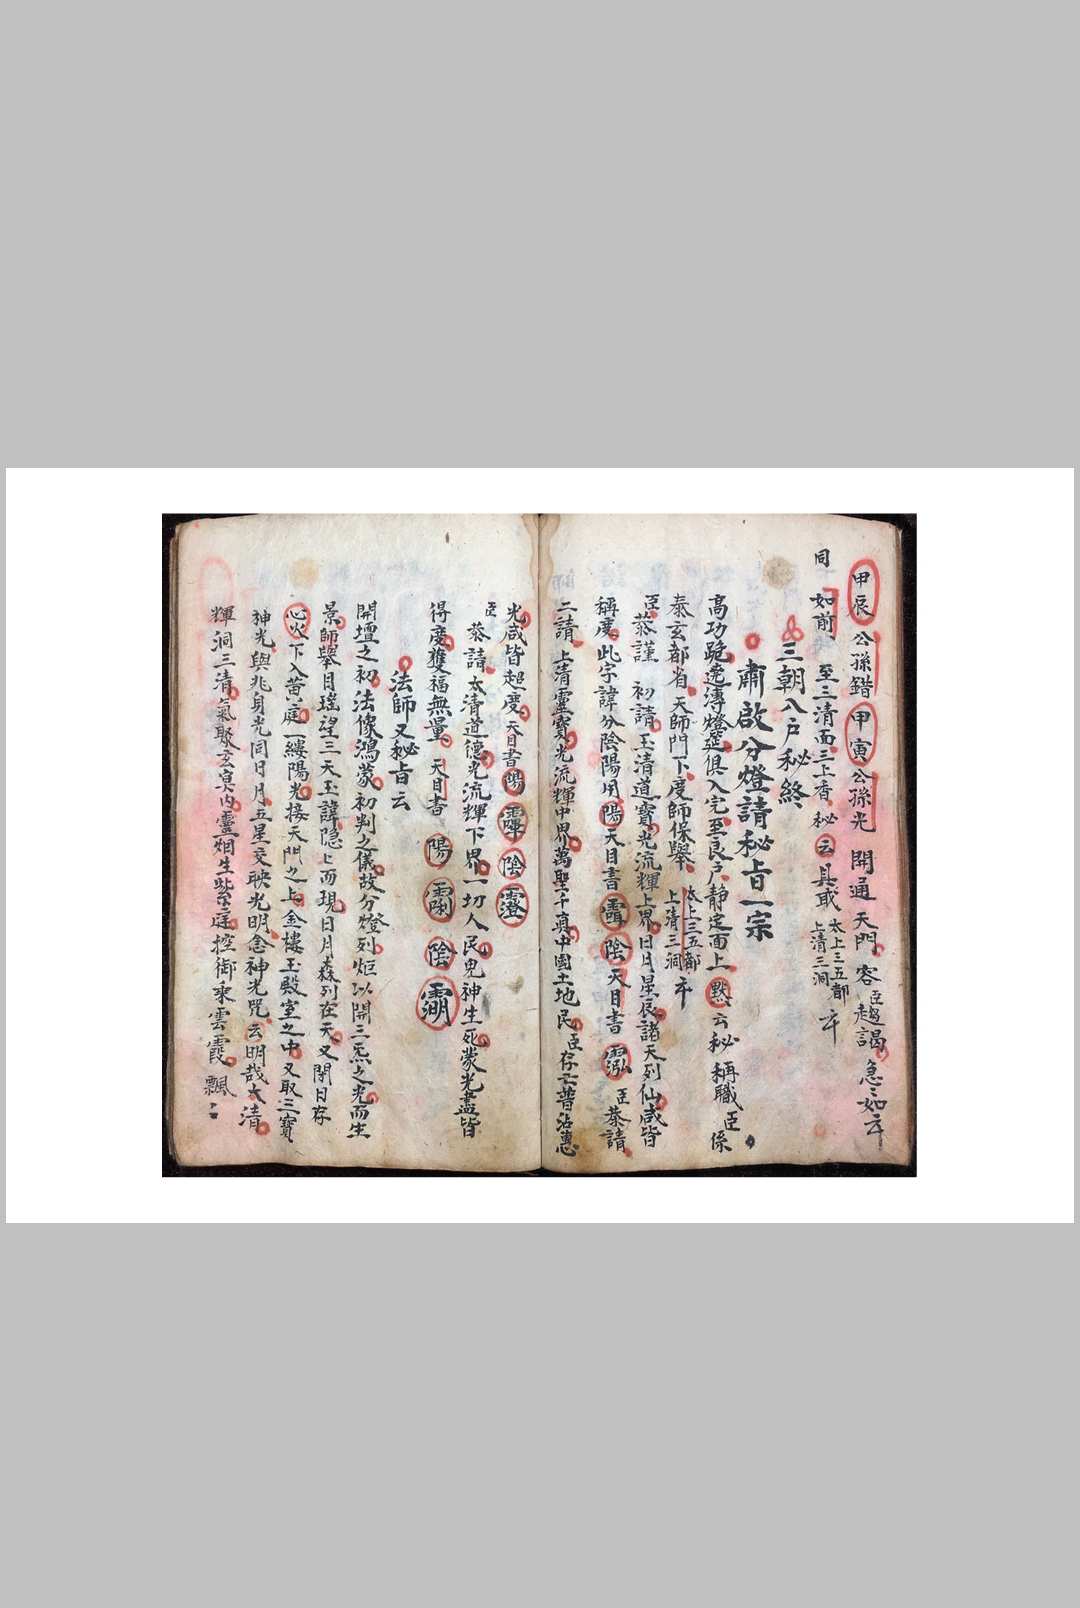 甲辰公孫錯甲寅公孫光 開通天門客臣趨謁 急々如云
同如前 至三清面三上香秘云具或太上三五都上清三洞
三朝八戶秘終
肅啟分燈請秘旨一宗
高功跪遶溥燈壇俱入完至良戶靜定面上默云秘 稱職臣係
泰玄都省天師門下度師保舉太上三五都上清三洞
臣恭謹 初請玉清道寶光流輝上界日月星辰諸天列仙咸皆
稱慶此字諱分陰陽用陽天目書陰天目書 臣恭請
二請上清靈寶光流輝中界萬聖千真中國土地民臣存亡普沾惠
光咸皆超度天目書陽 陰
臣恭請太清道德光流輝下界一切人民鬼神生死蒙光盡皆
得慶獲福無量天目書 陽 陰
法師又秘旨云
開壇之初法像鴻蒙初判之儀故分燈列炬以開三炁之光而生
景師舉目瑤望三天玉諱隐上而現日月森列在天又閉目存
心火下入黃庭一縷陽光接天門之上金樓玉殿室之中又取三寶
神光與兆身光同日月五星交映光明念神光咒云明哉太清
輝洞三清氣聚玄冥內靈烟生紫庭控御乘雲霞飄々